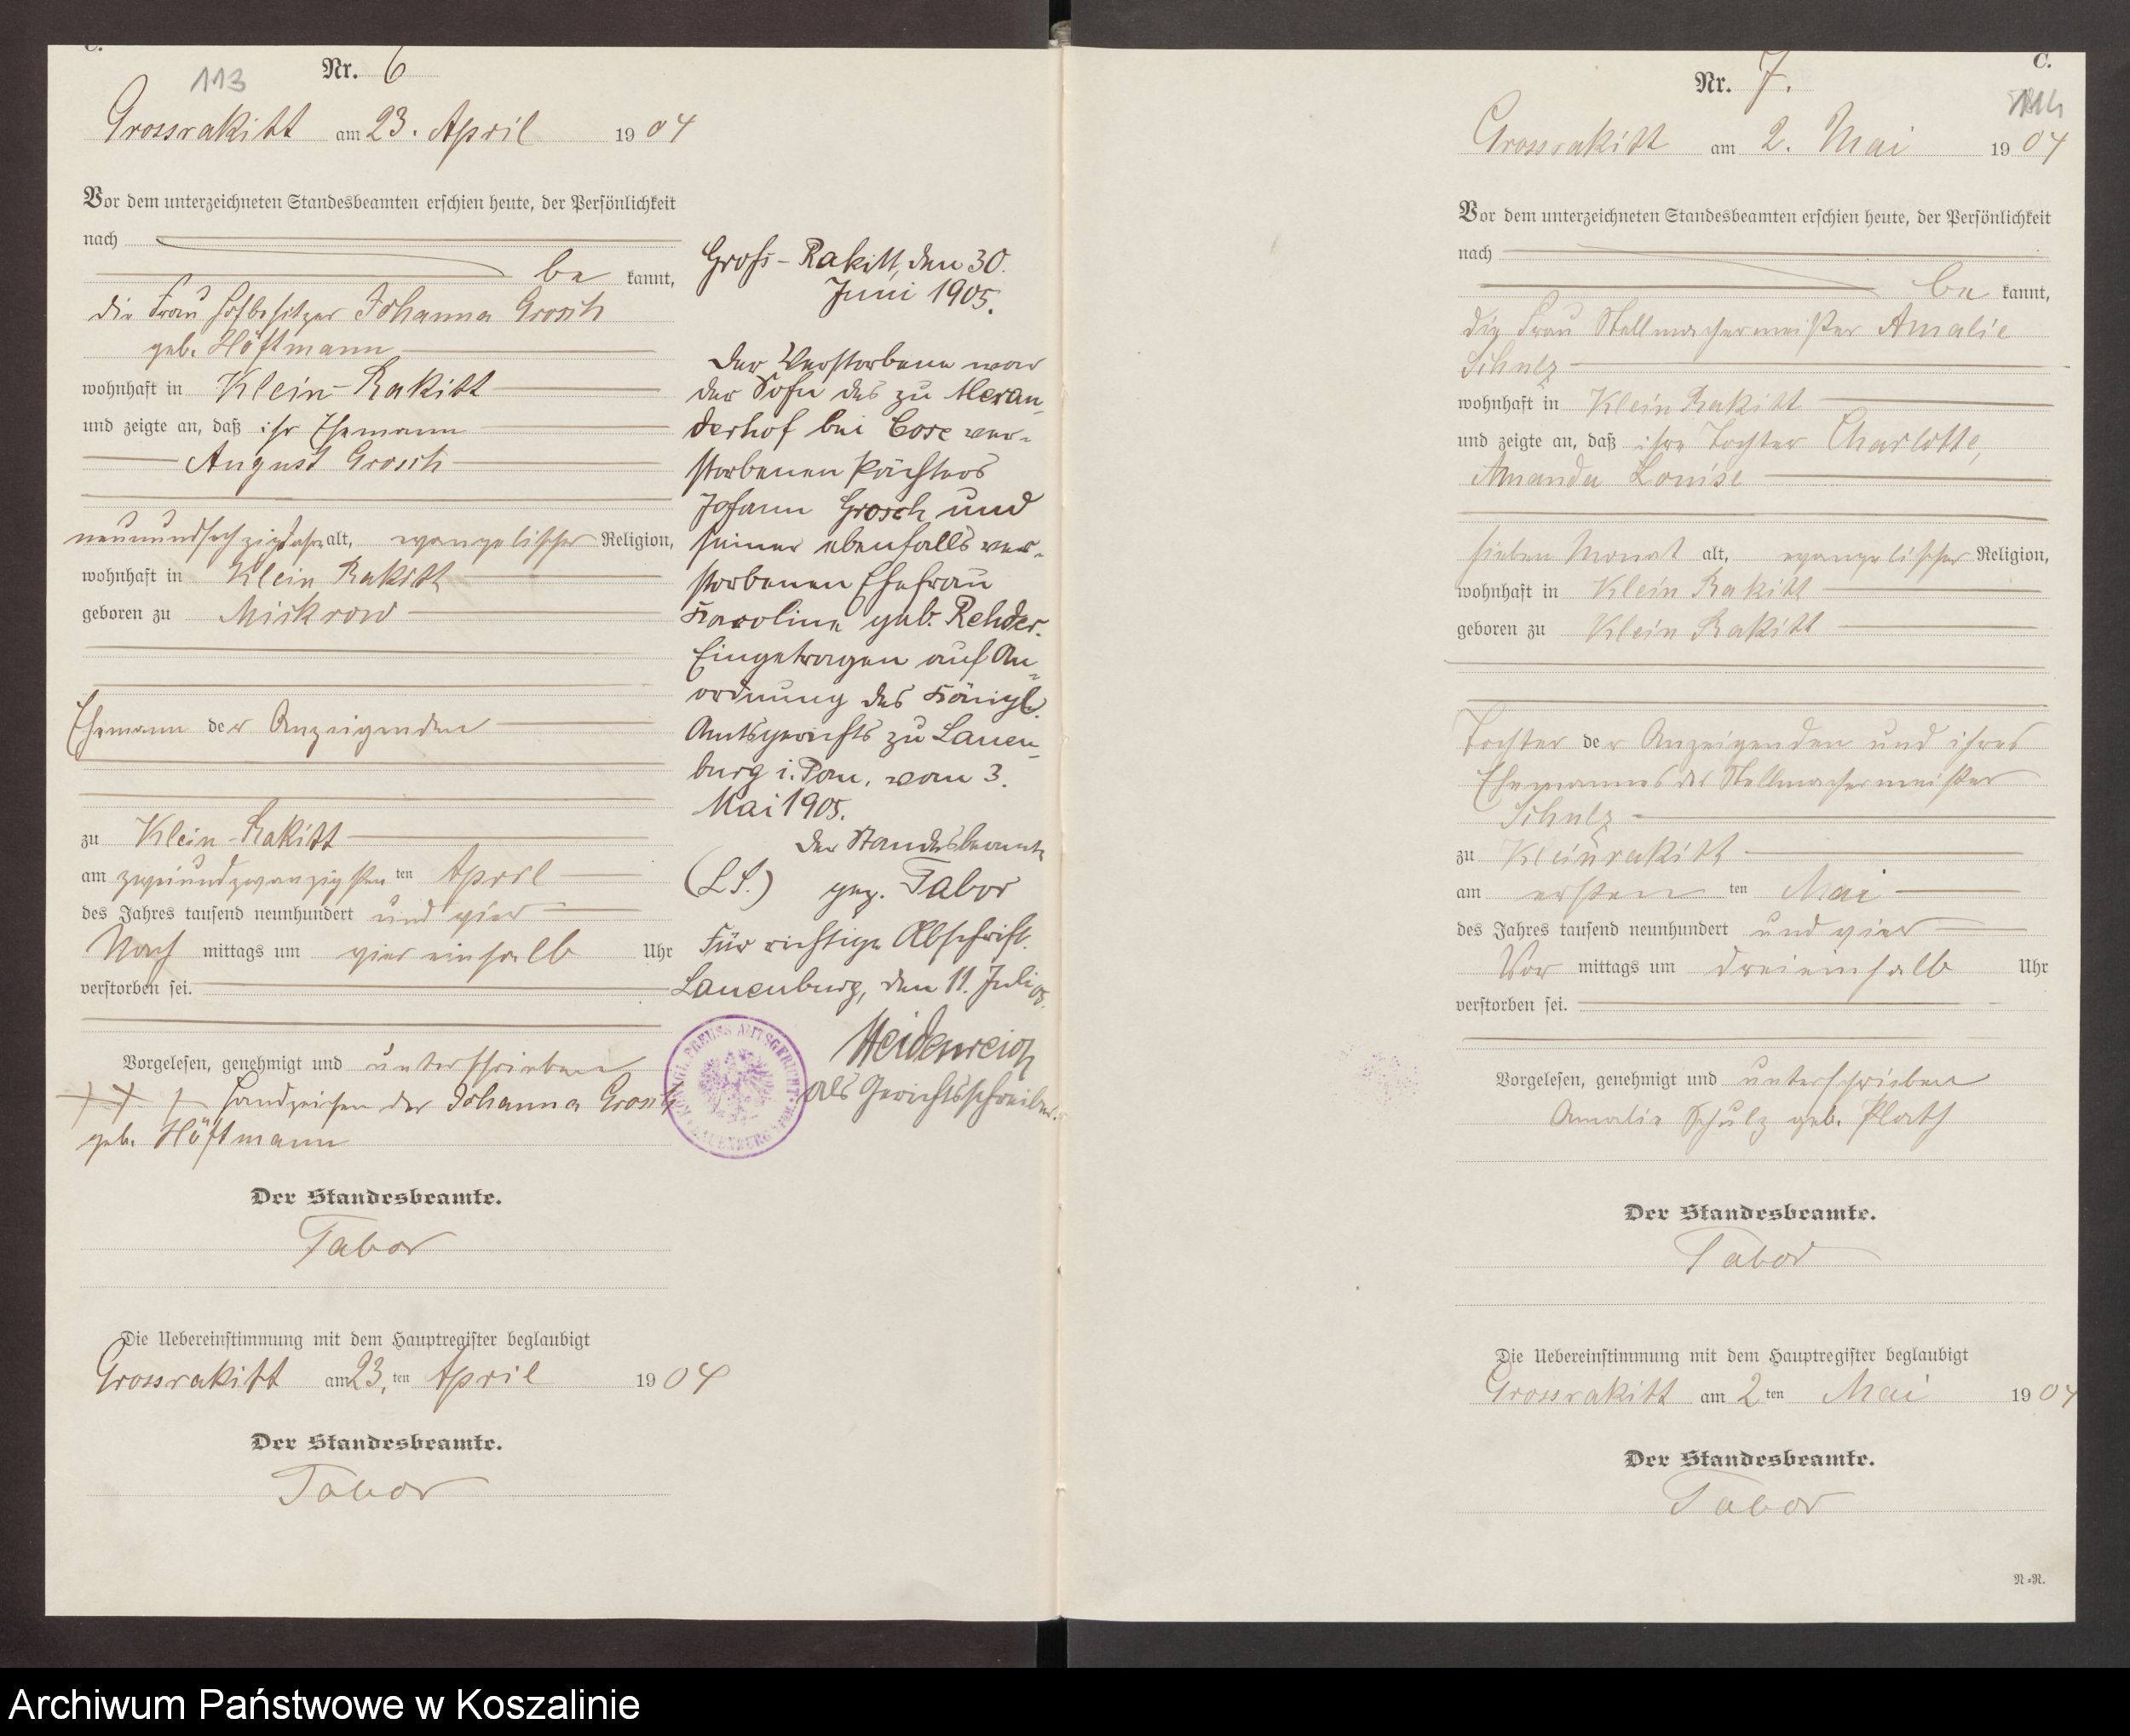 C.
113
Nr. 6
Grossrakitt am 23. April 1904
Vor dem unterzeichneten Standesbeamten erschien heute, der Persönlichkeit
nach
be kannt,
die Frau Hofbesitzer Johanna Grosch
geb. Höftmann
wohnhaft in Klein-Rakitt
und zeigte an, daß ihr Ehemann
August Grosch
neunundsechzig Jahre alt, evangelischer Religion,
wohnhaft in Klein Rakitt
geboren zu Mickrow
Ehemann der Anzeigenden
zu Klein-Rakitt
am zweiundzwanzigsten ten April
des Jahres tausend neunhundert und vier
Nach mittags um vier einhalb Uhr
verstorben sei.
Vorgelesen, genehmigt und unterschrieben
+ + + Handzeichen der Johanna Grosch
geb. Höftmann
Der Standesbeamte.
Tabor
Die Uebereinstimmung mit dem Hauptregister beglaubigt
Grossrakitt am 23. ten April 1904
Der Standesbeamte.
Tabor
Groß-Rakitt, den 30.
Juni 1905.
Der Verstorbene war
der Sohn des zu Alexan-
derhof bei Cose ver-
storbenen Pächters
Johann Grosch und
seiner ebenfalls ver-
storbenen Ehefrau
Karoline geb. Rehder.
Eingetragen auf An-
ordnung des Königl.
Amtsgerichts zu Lauen-
burg i. Pom. vom 3.
Mai 1905.
Der Standesbeamte
(L.S.) gez. Tabor
Für richtige Abschrift.
Lauenburg, den 11. Juli 05.
Heidenreich
als Gerichtsschreiber.
KÖNIGL. PREUSS. AMTSGERICHT LAUENBURG
Nr. 7.
C.
114
Grossrakitt am 2. Mai 1904
Vor dem unterzeichneten Standesbeamten erschien heute, der Persönlichkeit
nach
be kannt,
die Frau Stellmachermeister Amalie
Schulz
wohnhaft in Klein Rakitt
und zeigte an, daß ihre Tochter Charlotte,
Amanda Louise
sieben Monat alt, evangelischer Religion,
wohnhaft in Klein Rakitt
geboren zu Klein Rakitt
Tochter der Anzeigenden und ihres
Ehemannes des Stellmachermeister
Schulz
zu Kleinrakitt
am ersten ten Mai
des Jahres tausend neunhundert und vier
Vor mittags um dreieinhalb Uhr
verstorben sei.
Vorgelesen, genehmigt und unterschrieben
Amalie Schulz geb. Plath
Der Standesbeamte.
Tabor
Die Uebereinstimmung mit dem Hauptregister beglaubigt
Grossrakitt am 2 ten Mai 1904
Der Standesbeamte.
Tabor
N=N.
Archiwum Państwowe w Koszalinie